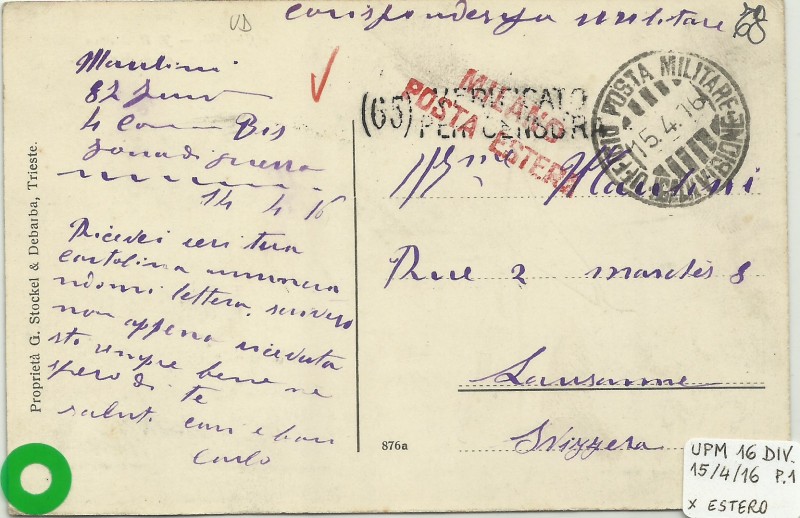 VD
corispondenza militare
68
Mantini
82
4 Com Bis
zona di guerra
14 4 16
Ricevei ieri tua
cartolina annuncia
ndomi lettera, scriverò
non appena ricevuta
sto sempre bene ne
spero di te
saluti cari e baci
Carlo
Proprietà G. Stockel & Debarba, Trieste.
(65) VERIFICATO
PER CENSURA
MILANO
POSTA ESTERA
UFFICIO POSTA MILITARE
15.4.16
Mme Mantini
Rue 2 marchés 8
Lausanne
Svizzera
876a
UPM 16 DIV.
15/4/16 P.1
x ESTERO